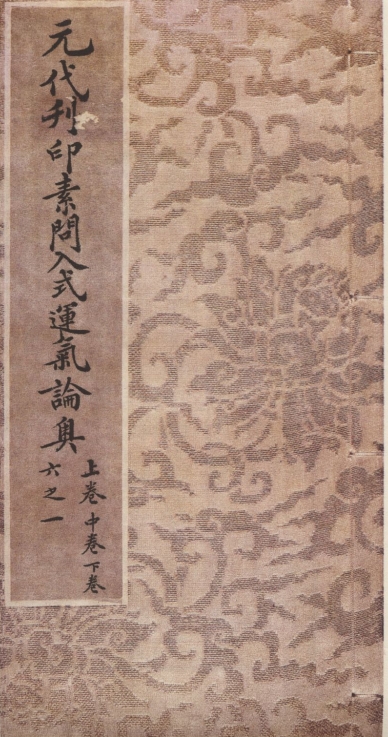 元代刋印素問入式運氣論奥
上卷中卷下卷
六之一